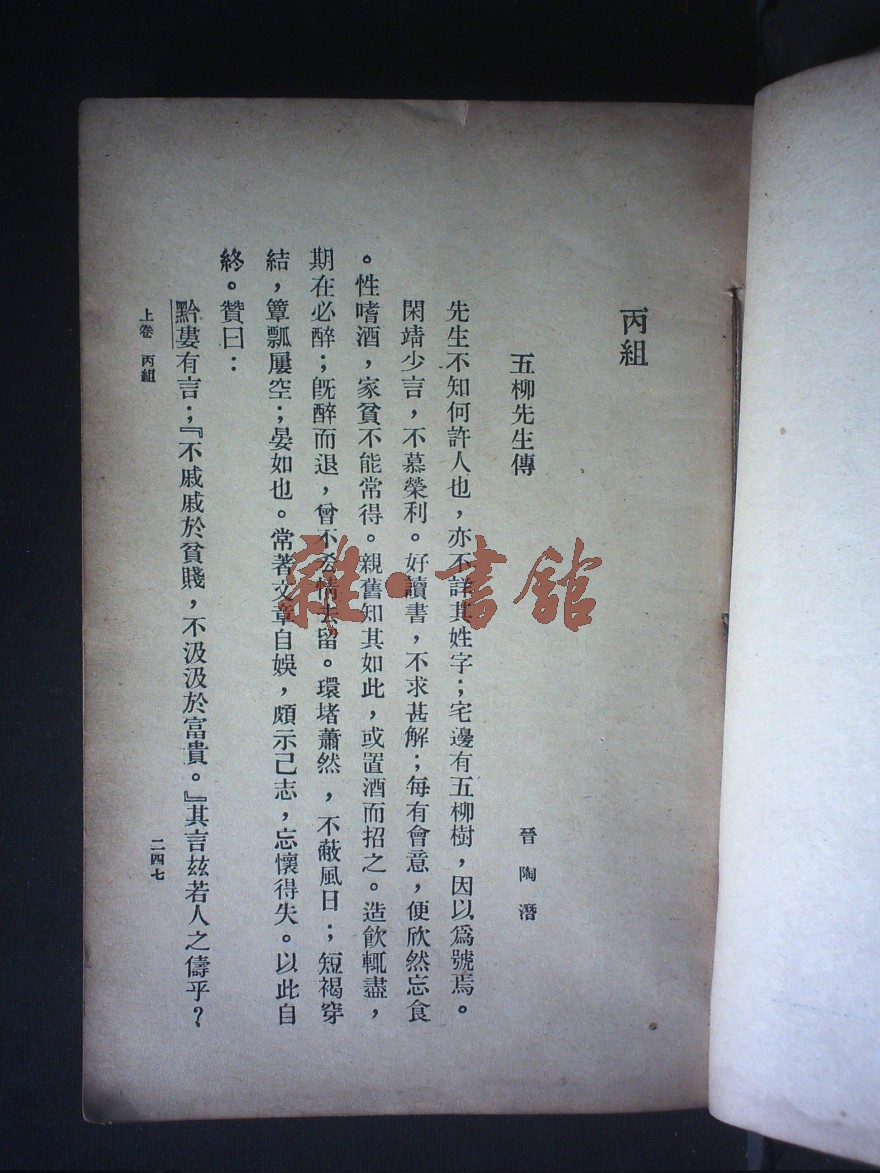 丙組
五柳先生傳
晉陶潛
先生不知何許人也，亦不詳其姓字；宅邊有五柳樹，因以爲號焉。
閑靖少言，不慕榮利。好讀書，不求甚解；每有會意，便欣然忘食
。性嗜酒，家貧不能常得。親舊知其如此，或置酒而招之。造飮輒盡，
期在必醉；旣醉而退，曾不吝情去留。環堵蕭然，不蔽風日；短褐穿
結，簞瓢屢空；晏如也。常著文章自娛，頗示己志，忘懷得失。以此自
終。贊曰：
黔婁有言；『不戚戚於貧賤，不汲汲於富貴。』其言茲若人之儔乎？
上卷 丙組
二四七
雜·書館